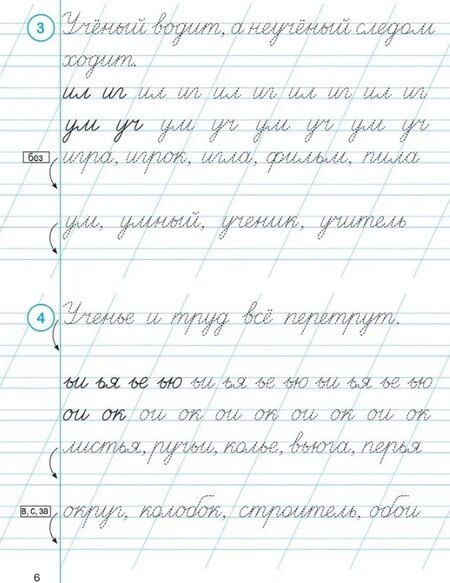 3 Учёный водит, а неучёный следом
ходит.
ил иг ил иг ил иг ил иг ил иг
ум уч ум уч ум уч ум уч
без игра, игрок, игла, фильм, пила
ум, умный, ученик, учитель
4 Ученье и труд всё перетрут.
ьи ья ье ью ьи ья ье ью ьи ья ье ью
ои ок ои ок ои ок ои ок ои ок
листья, ручьи, колье, вьюга, перья
в, с, за округ, колобок, строитель, обои
6